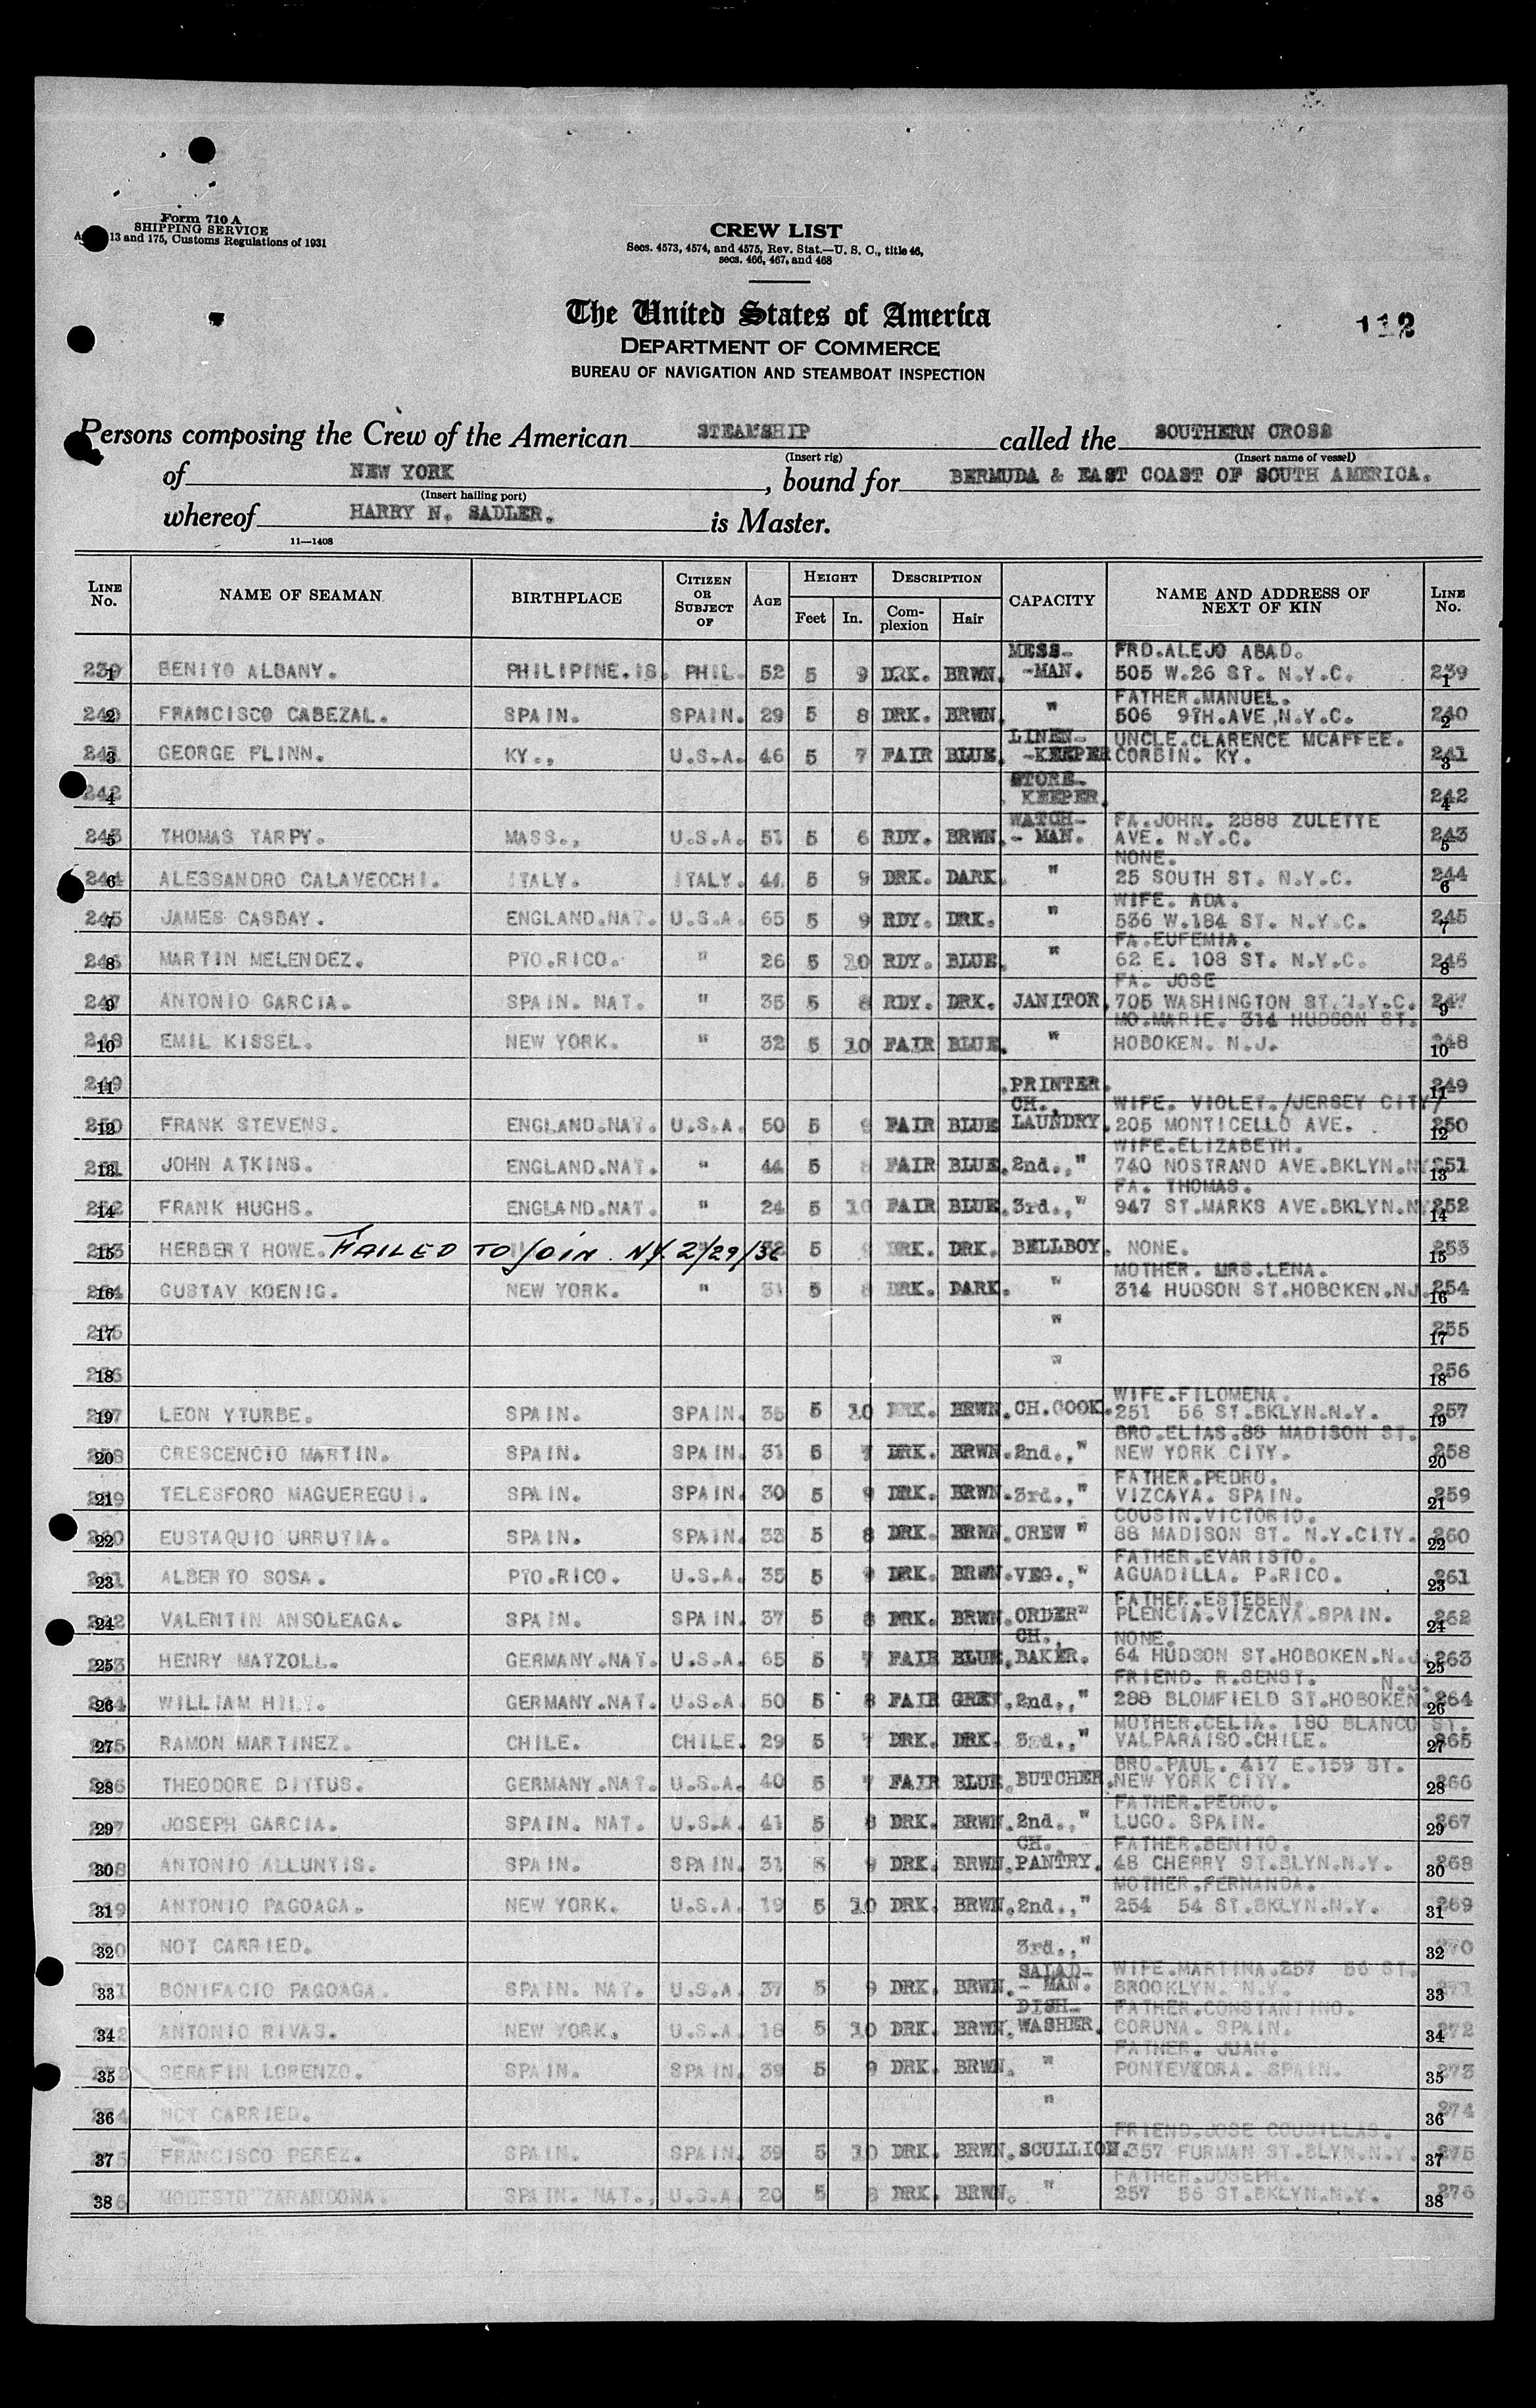 Form 710 A
SHIPPING SERVICE
13 and 175, Customs Regulations of 1931
CREW LIST
Secs. 4573, 4574, and 4575, Rev. Stat.—U. S. C., title 46,
secs. 466, 467, and 468
The United States of America
DEPARTMENT OF COMMERCE
BUREAU OF NAVIGATION AND STEAMBOAT INSPECTION
112
Persons composing the Crew of the American STEAMSHIP called the SOUTHERN CROSS
(Insert rig) (Insert name of vessel)
of NEW YORK, bound for BERMUDA & EAST COAST OF SOUTH AMERICA.
(Insert hailing port)
whereof HARRY N. SADLER. is Master.
11—1408
LINE No. NAME OF SEAMAN BIRTHPLACE CITIZEN OR SUBJECT OF AGE HEIGHT Feet In. DESCRIPTION Complexion Hair CAPACITY NAME AND ADDRESS OF NEXT OF KIN LINE No.
239 1 BENITO ALBANY. PHILIPINE.IS. PHIL. 52 5 9 DRK. BRWN. MESS--MAN. FRD.ALEJO ABAD. 505 W.26 ST. N.Y.C. 239 1
240 2 FRANCISCO CABEZAL. SPAIN. SPAIN. 29 5 8 DRK. BRWN. " FATHER.MANUEL. 506 9TH.AVE,N.Y.C. 240 2
241 3 GEORGE FLINN. KY., U.S.A. 46 5 7 FAIR BLUE. LINEN--KEEPER UNCLE.CLARENCE MCAFFEE. CORBIN. KY. 241 3
242 4 STORE-KEEPER. 242 4
243 5 THOMAS TARPY. MASS., U.S.A. 51 5 6 RDY. BRWN. WATCH-- MAN. FA.JOHN. 2888 ZULETTE AVE. N.Y.C. 243 5
244 6 ALESSANDRO CALAVECCHI. ITALY. ITALY. 44 5 9 DRK. DARK. " NONE. 25 SOUTH ST. N.Y.C. 244 6
245 7 JAMES CASBAY. ENGLAND.NAT. U.S.A. 65 5 9 RDY. DRK. " WIFE. ADA. 536 W.184 ST. N.Y.C. 245 7
246 8 MARTIN MELENDEZ. PTO.RICO. " 26 5 10 RDY. BLUE. " FA.EUFEMIA. 62 E. 108 ST. N.Y.C. 246 8
247 9 ANTONIO GARCIA. SPAIN. NAT. " 35 5 8 RDY. DRK. JANITOR. FA. JOSE 705 WASHINGTON ST.N.Y.C. 247 9
248 10 EMIL KISSEL. NEW YORK. " 32 5 10 FAIR BLUE. " MO.MARIE. 314 HUDSON ST. HOBOKEN. N.J. 248 10
249 11 PRINTER. 249 11
250 12 FRANK STEVENS. ENGLAND.NAT. U.S.A. 50 5 9 FAIR BLUE CH., LAUNDRY. WIFE. VIOLET./JERSEY CITY/ 205 MONTICELLO AVE. 250 12
251 13 JOHN ATKINS. ENGLAND.NAT. " 44 5 8 FAIR BLUE. 2nd.," WIFE.ELIZABETH. 740 NOSTRAND AVE.BKLYN.NY 251 13
252 14 FRANK HUGHS. ENGLAND.NAT. " 24 5 10 FAIR BLUE. 3rd.," FA. THOMAS. 947 ST.MARKS AVE.BKLYN.NY 252 14
253 15 HERBERT HOWE. FAILED TO JOIN. NY. 2/29/36 5 DRK. DRK. BELLBOY. NONE. 253 15
254 16 GUSTAV KOENIG. NEW YORK. " 31 5 8 DRK. DARK. " MOTHER. MRS.LENA. 314 HUDSON ST.HOBOKEN.NJ. 254 16
255 17 " 255 17
256 18 " 256 18
257 19 LEON YTURBE. SPAIN. SPAIN. 35 5 10 DRK. BRWN. CH.COOK. WIFE.FILOMENA. 251 56 ST.BKLYN.N.Y. 257 19
258 20 CRESCENCIO MARTIN. SPAIN. SPAIN. 31 5 7 DRK. BRWN. 2nd.," BRO.ELIAS.88 MADISON ST. NEW YORK CITY. 258 20
259 21 TELESFORO MAGUEREGUI. SPAIN. SPAIN. 30 5 9 DRK. BRWN. 3rd.," FATHER.PEDRO. VIZCAYA. SPAIN. 259 21
260 22 EUSTAQUIO URRUTIA. SPAIN. SPAIN. 33 5 8 DRK. BRWN. CREW " COUSIN.VICTORIO. 88 MADISON ST. N.Y.CITY. 260 22
261 23 ALBERTO SOSA. PTO.RICO. U.S.A. 35 5 9 DRK. BRWN. VEG.," FATHER.EVARISTO. AGUADILLA. P.RICO. 261 23
262 24 VALENTIN ANSOLEAGA. SPAIN. SPAIN. 37 5 8 DRK. BRWN. ORDER" FATHER.ESTEBEN. PLENCIA.VIZCAYA.SPAIN. 262 24
263 25 HENRY MATZOLL. GERMANY.NAT. U.S.A. 65 5 7 FAIR BLUE. CH., BAKER. NONE. 64 HUDSON ST.HOBOKEN.N.J. 263 25
264 26 WILLIAM HILT. GERMANY.NAT. U.S.A. 50 5 8 FAIR GREY. 2nd.," FRIEND. R.SENST. N.J. 288 BLOMFIELD ST.HOBOKEN. 264 26
265 27 RAMON MARTINEZ. CHILE. CHILE. 29 5 7 DRK. DRK. 3rd.," MOTHER.CELIA. 180 BLANCO ST. VALPARAISO.CHILE. 265 27
266 28 THEODORE DITTUS. GERMANY.NAT. U.S.A. 40 5 7 FAIR BLUE. BUTCHER. BRO.PAUL. 417 E.159 ST. NEW YORK CITY. 266 28
267 29 JOSEPH GARCIA. SPAIN. NAT. U.S.A. 41 5 8 DRK. BRWN. 2nd.," FATHER.PEDRO. LUGO. SPAIN. 267 29
268 30 ANTONIO ALLUNTIS. SPAIN. SPAIN. 31 5 9 DRK. BRWN. CH. PANTRY. FATHER.BENITO. 48 CHERRY ST.BLYN.N.Y. 268 30
269 31 ANTONIO PAGOAGA. NEW YORK. U.S.A 19 5 10 DRK. BRWN. 2nd.," MOTHER.FERNANDA. 254 54 ST.BKLYN.N.Y. 269 31
270 32 NOT CARRIED. 3rd.," 270 32
271 33 BONIFACIO PAGOAGA. SPAIN. NAT. U.S.A 37 5 9 DRK. BRWN. SALAD-- MAN. WIFE.MARTINA.257 56 ST. BROOKLYN. N.Y. 271 33
272 34 ANTONIO RIVAS. NEW YORK. U.S.A 18 5 10 DRK. BRWN. DISH-WASHER. FATHER.CONSTANTINO. CORUNA. SPAIN. 272 34
273 35 SERAFIN LORENZO. SPAIN. SPAIN. 39 5 9 DRK. BRWN. " FATHER. JUAN. PONTEVEDRA. SPAIN. 273 35
274 36 NOT CARRIED. " 274 36
275 37 FRANCISCO PEREZ. SPAIN. SPAIN. 39 5 10 DRK. BRWN. SCULLION. FRIEND.JOSE COUSILLAS. 357 FURMAN ST.BLYN.N.Y. 275 37
276 38 MODESTO ZARANDONA. SPAIN. NAT., U.S.A 20 5 8 DRK. BRWN. " FATHER.JOSEPH. 257 56 ST.BKLYN.N.Y. 276 38